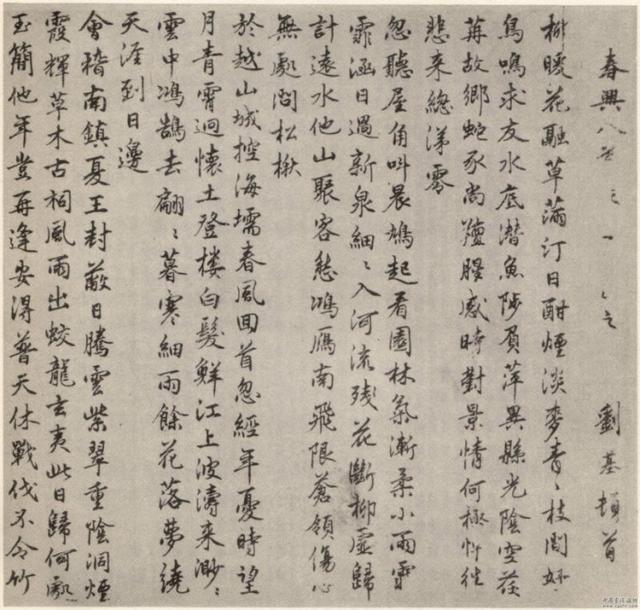 春興八首 劉基頓首
柳暖花融草滿汀日酣煙淡麥青〻枝間好
鳥鳴求友水底潛魚陟負萍異縣光陰空荏
苒故鄉蛇豕尚羶腥感時對景情何極忖往
悲來總涕零
忽聽屋角叫晨鳩起看園林氣漸柔小雨霏
霏涵日過新泉細〻入河流殘花斷柳虛歸
計遠水他山聚客愁鴻雁南飛限蒼領傷心
無處問松楸
於越山城控海壖春風回首忽經年憂時望
月青霄迥懷土登樓白髮鮮江上波濤來渺〻
雲中鴻鵠去翩〻暮寒細雨餘花落夢繞
天涯到日邊
會稽南鎮夏王封蔽日騰雲紫翠重陰洞煙
霞輝草木古祠風雨出蛟龍玄夷此日歸何處
玉簡他年豈再逢安得普天休戰伐不令竹